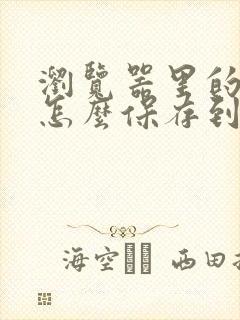 瀏覽器里的
怎麼保存到
海空 西田